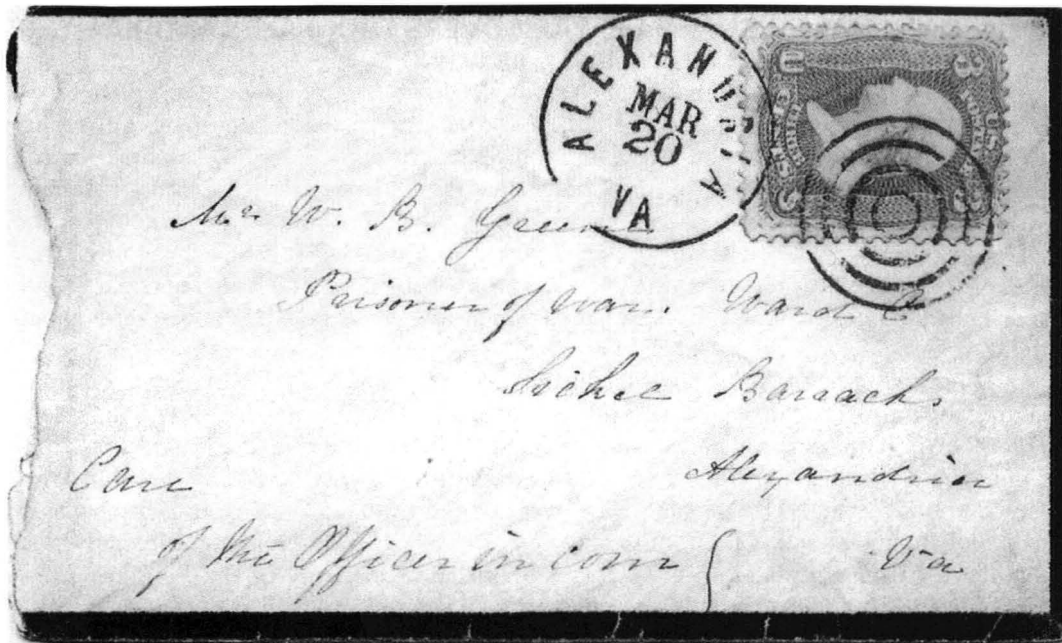 ALEXANDRIA
MAR
20
VA
U 3 U.S.
Mr W. B. Green
Prisoner of War. Ward C
Sickel Barracks
Care Alexandria
of the Officer in com Va